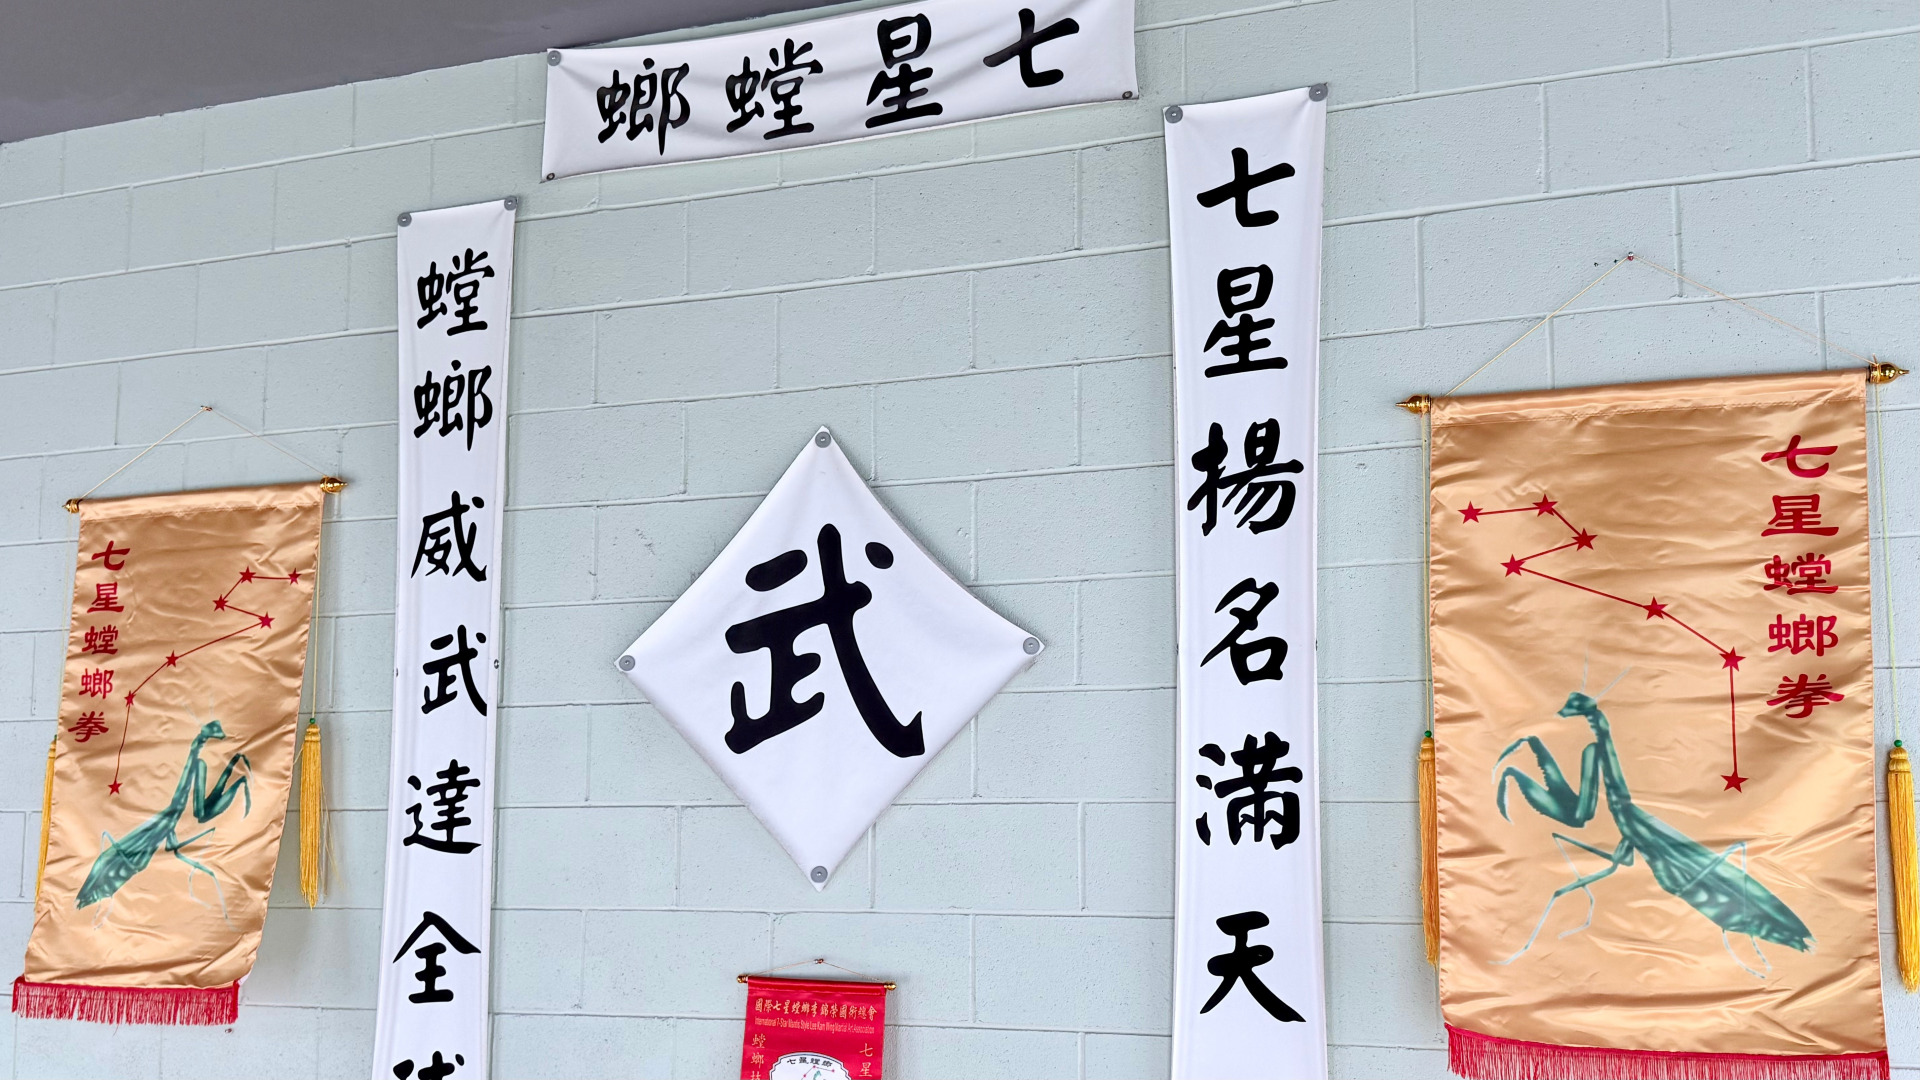 七星螳螂
七星揚名滿天
螳螂威武達全
武
七星螳螂拳
七星螳螂拳
國際七星螳螂李錦榮國術總會
International 7-Star Mantis Style Lee Kam Wing Martial Art Association
七星
螳螂
七星螳螂